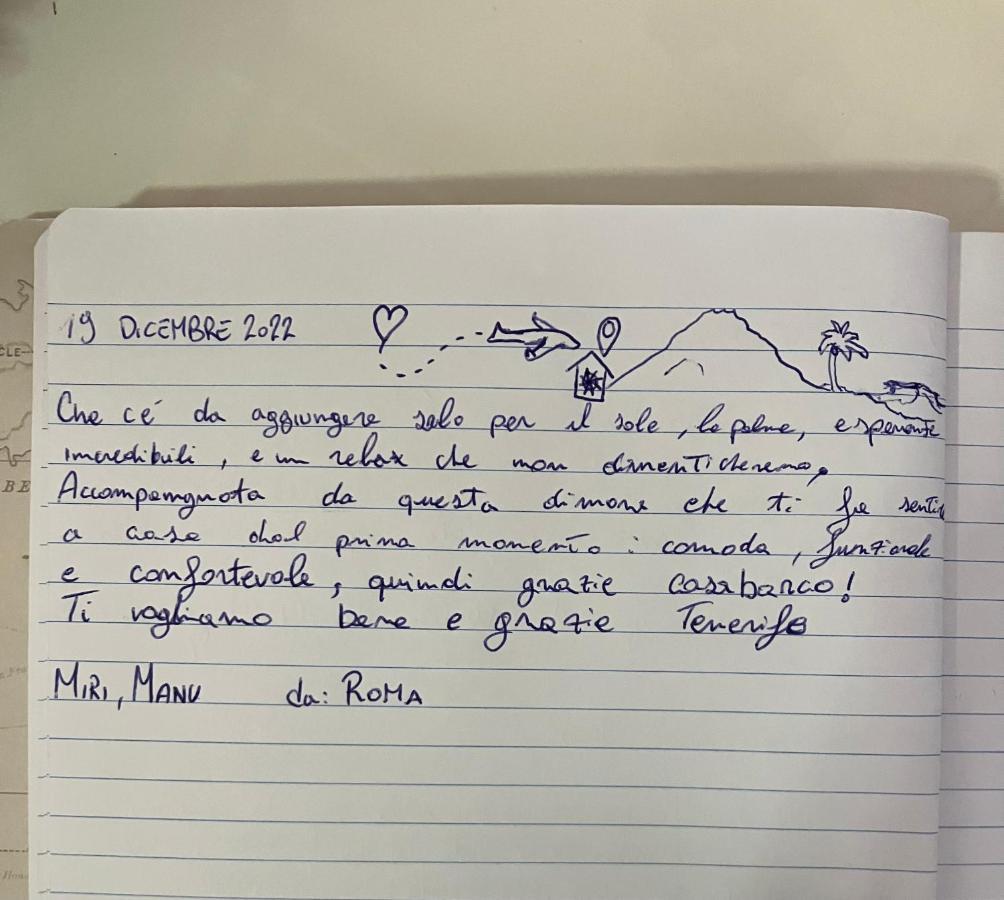 19 DICEMBRE 2022
Che c'é da aggiungere solo per il sole, le palme, esperienze
incredibili, e un relax che non dimenticheremo,
Accompagnata da questa dimora che ti fa sentire
a casa dal primo momento: comoda, funzionale
e confortevole, quindi grazie casabarco!
Ti vogliamo bene e grazie Tenerife
MIRI, MANU da: ROMA
CLE
BE